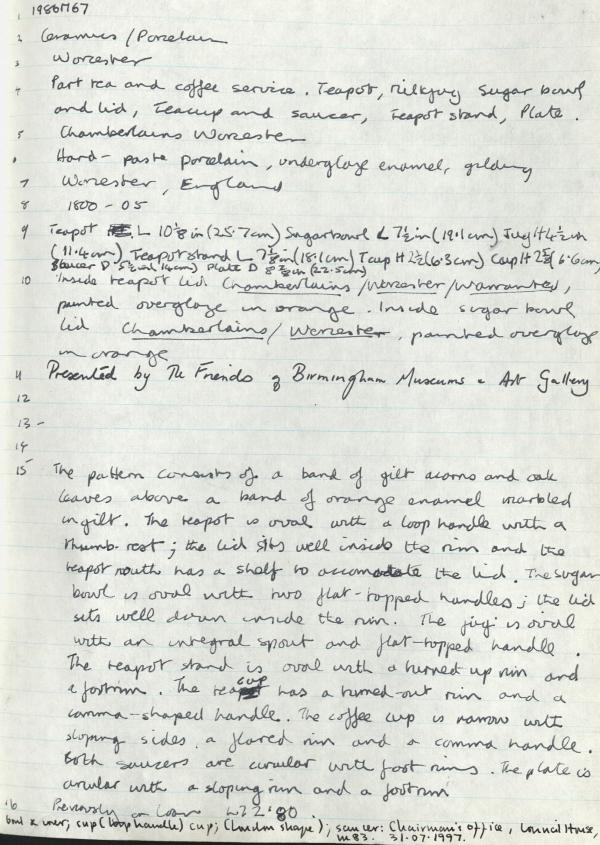 1 1986M67
2 Ceramics / Porcelain
3 Worcester
4 Part tea and coffee service. Teapot, milkjug Sugar bowl
and lid, Teacup and saucer, Teapot stand, Plate.
5 Chamberlains Worcester
6 Hard-paste porcelain, underglaze enamel, gilding
7 Worcester, England
8 1800-05
9 Teapot L 10 1/8 in (25.7cm) Sugarbowl L 7 1/2 in (19.1cm) Jug H 4 1/2 in
(11.4cm) Teapot stand L 7 1/8 in (18.1cm) Tcup H 2 1/2 (6.3cm) Coup H 2 5/8 (6.6cm)
Saucer D 5 1/2 in (14cm) Plate D 8 7/8 in (22.5cm)
10 Inside teapot lid Chamberlains / Worcester / Warranted,
painted overglaze in orange. Inside sugar bowl
lid Chamberlains / Worcester, painted overglaze
in orange
11 Presented by The Friends of Birmingham Museums & Art Gallery
12
13 -
14
15 The pattern consists of a band of gilt acorns and oak
leaves above a band of orange enamel marbled
in gilt. The teapot is oval with a loop handle with a
thumb-rest; the lid sits well inside the rim and the
teapot mouth has a shelf to accomodate the lid. The sugar
bowl is oval with two flat-topped handles; the lid
sits well down inside the rim. The jug is oval
with an integral spout and flat-topped handle.
The teapot stand is oval with a turned up rim and
a footrim. The teacup has a turned-out rim and a
comma-shaped handle. The coffee cup is narrow with
sloping sides, a flared rim and a comma handle.
Both saucers are circular with foot rims. The plate is
circular with a sloping rim and a footrim
16 Previously on loan L22'80.
bowl & cover; cup (loop handle) cup; (London shape); saucer: Chairman's office, Council House,
M83. 31.07.1997.